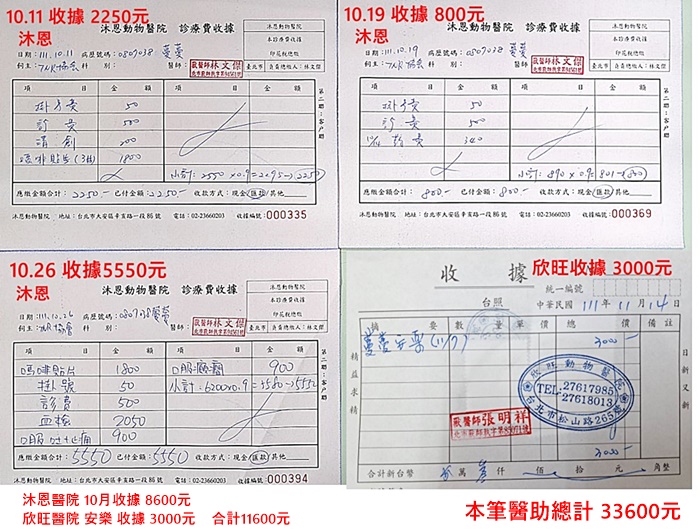 10.11 收據 2250元
沐恩
沐恩動物醫院 診療費收據
本診療費收據
印花稅總繳
日期:111.10.11 病歷號碼:0807038 蔓蔓
飼主:TNR協會 科別: 醫師:
獸醫師林文傑
臺北市 負責總繳人:林文傑
項目 金額 項目 金額
掛號費 50
診費 500
清創 200
嗎啡貼片(3個) 1800
小計:2550×0.9=2295→2250
應繳金額合計:2250.- 已付金額:2250.- 收款方式:現金/匯款/其他
沐恩動物醫院 地址:台北市大安區辛亥路一段86號 電話:02-23660203 收據編號:000335
第二聯:客戶聯
10.19 收據 800元
沐恩
沐恩動物醫院 診療費收據
本診療費收據
印花稅總繳
日期:111.10.19 病歷號碼:0807038 蔓蔓
飼主:TNR協會 科別: 醫師:
獸醫師林文傑
臺北市 負責總繳人:林文傑
項目 金額 項目 金額
掛號費 50
診費 500
340
小計:890×0.9=801→800
應繳金額合計:800.- 已付金額:800.- 收款方式:現金/匯款/其他
沐恩動物醫院 地址:台北市大安區辛亥路一段86號 電話:02-23660203 收據編號:000369
第二聯:客戶聯
10.26 收據5550元
沐恩
沐恩動物醫院 診療費收據
本診療費收據
印花稅總繳
日期:111.10.26 病歷號碼:0807038 蔓蔓
飼主: 協會 科別: 醫師:
獸醫師林文傑
臺北市 負責總繳人:林文傑
項目 金額 項目 金額
嗎啡貼片 1800 900
掛號 50 小計:6200×0.9=5580→5550
診費 500
血檢 2050
口服止痛 900
應繳金額合計:5550 已付金額:5550 收款方式:現金/匯款/其他
沐恩動物醫院 地址:台北市大安區辛亥路一段86號 電話:02-23660203 收據編號:000394
第二聯:客戶聯
欣旺收據 3000元
收據
統一編號
台照 中華民國 111年11月14日
摘要 數量 單價 總價 備註
蔓蔓安樂(11/7) 3000-
精益求精
日新又新
欣旺動物醫院
TEL:27617985
27618013
台北市松山路265號
獸醫師張明祥
3000-
合計新台幣 萬參仟 佰 拾 元 角整
沐恩醫院 10月收據 8600元
欣旺醫院 安樂 收據 3000元 合計11600元
本筆醫助總計 33600元